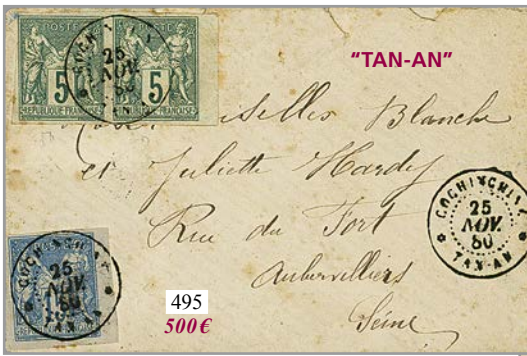 POSTES
5 5
REPUBLIQUE FRANCAISE
25
NOV.
80
AN
"TAN-AN"
Mesdemoiselles Blanche
et Juliette Hardy
Rue du Fort
Aubervilliers
Seine
COCHINCHINE
25
NOV.
80
TAN-AN
COCHINCHINE
25
NOV.
80
TAN-AN
495
500€